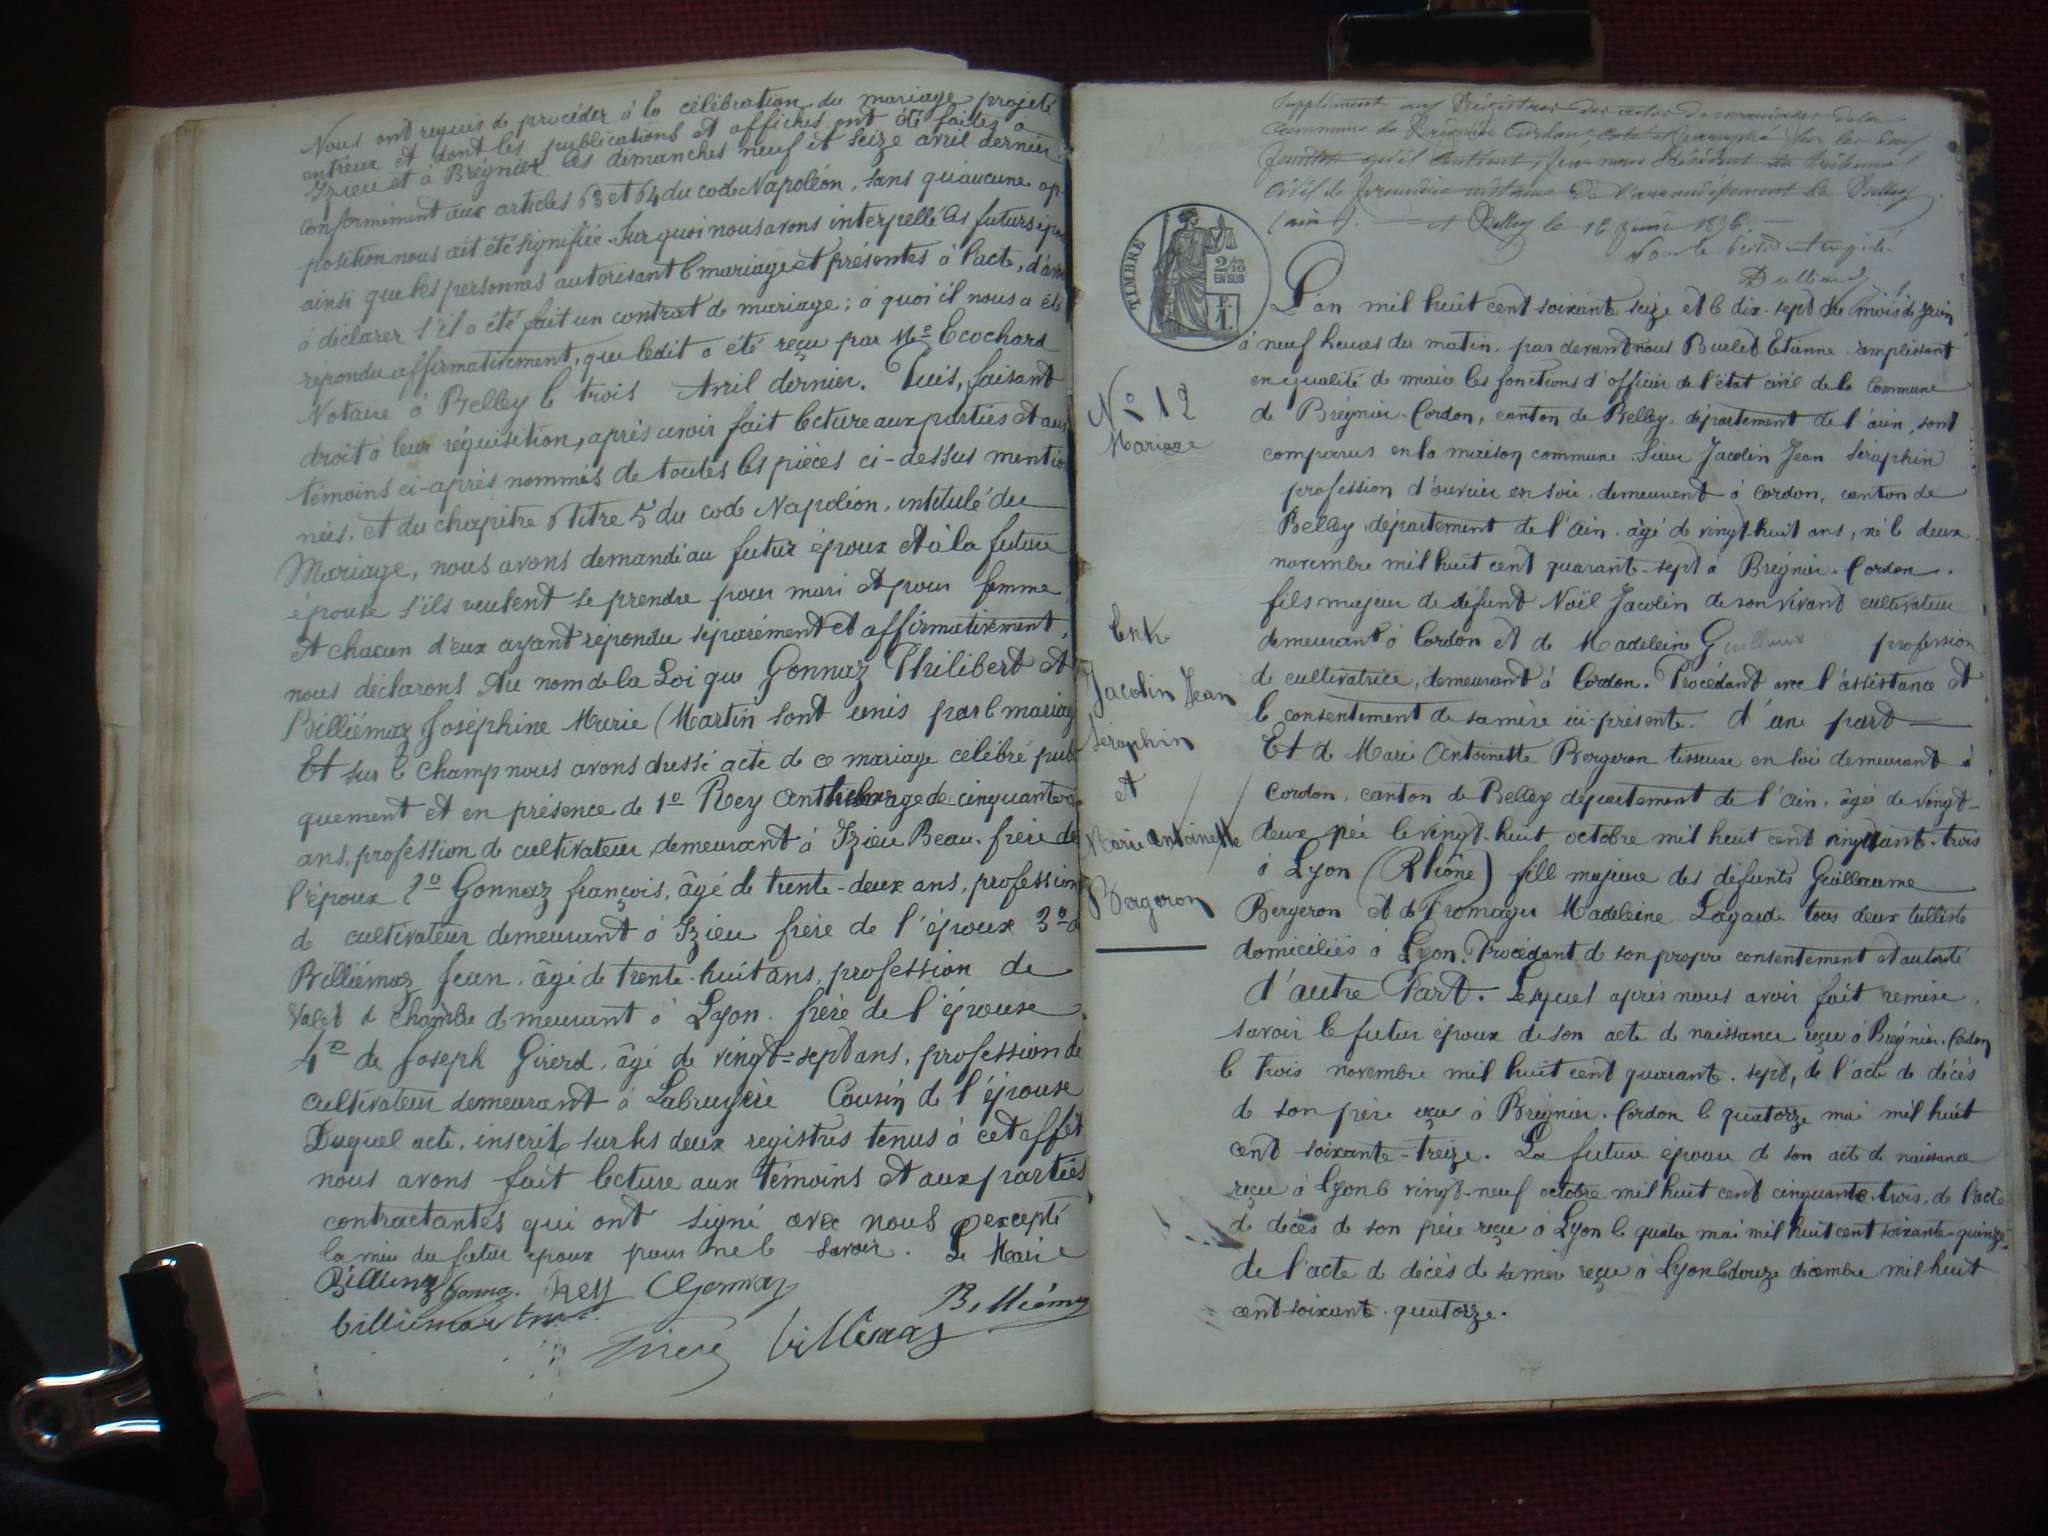 Nous ont requis de procéder à la célébration du mariage projeté
entreux et dont les publications et affiches ont été faites à
Izieu et à Brégnier les dimanches neuf et seize avril dernier
conformément aux articles 63 et 64 du code Napoléon, sans qu'aucune op-
position nous ait été signifiée. Sur quoi nous avons interpellé les futurs époux
ainsi que les personnes autorisant le mariage et présentes à l'acte, d'avoir
à déclarer s'il a été fait un contrat de mariage; à quoi il nous a été
repondu affirmativement, que ledit a été reçu par Me Ecochard
Notaire à Belley le trois Avril dernier. Puis, faisant
droit à leur réquisition, après avoir fait lecture aux parties et aux
témoins ci-après nommés de toutes les pièces ci-dessus mention
nées, et du chapitre 6 titre 5 du code Napoléon, intitulé du
Mariage, nous avons demandé au futur époux et à la future
épouse s'ils veulent se prendre pour mari et pour femme,
et chacun d'eux ayant répondu séparément et affirmativement,
nous déclarons Au nom de la Loi que Gonnaz Philibert et
Billiémaz Joséphine Marie (Martin sont unis par le mariage
Et sur le champ nous avons dressé acte de ce mariage célébré publi
quement et en présence de 1o Rey age de cinquante
ans, profession de cultivateur, demeurant à Izieu Beau-frère de
l'époux 2o Gonnaz françois, âgé de trente-deux ans, profession
de cultivateur demeurant à Izieu frère de l'époux 3o de
Billiémaz Jean, âgé de trente-huit ans, profession de
Valet de chambre demeurant à Lyon. frère de l'épouse
4o de Joseph Girerd, âgé de vingt-sept ans, profession de
cultivateur demeurant à Labruyère Cousin de l'épouse
Duquel acte, inscrit sur les deux registres tenus à cet effet
nous avons fait lecture aux témoins et aux parties
contractantes qui ont signé avec nous excepté
la mère du futur époux pour ne le savoir. Le Maire
Billiemaz Gonnaz Rey Gonnaz
Billiémaz
billiemaz
Supplément aux Régistres des actes de mariages de la
commune de Brégnier Cordon, coté et paraphé sur les
feuillets qu'il contient, par nous Président du Tribunal
Civil de première instance de l'arrondissement de Belley
(ain). à Belley le 16 juin 1876.
TIMBRE
2/10
EN SUS
L'an mil huit cent soixante seize et le dix-sept du mois de juin
à neuf heures du matin, par devant nous Burlet Etienne remplissant
en qualité de maire les fonctions d'officier de l'état civil de la Commune
de Brégnier-Cordon, canton de Belley, département de l'ain, sont
comparus en la maison commune. Sieur Jacolin Jean Séraphin
profession d'ouvrier en soie, demeurant à Cordon, canton de
Belley département de l'Ain, âgé de vingt-huit ans, né le deux
novembre mil huit cent quarante-sept à Brégnier-Cordon.
fils majeur de défunt Noël Jacolin de son vivant cultivateur
demeurant à Cordon et de Madeleine profession
de cultivatrice, demeurant à Cordon. Procédant avec l'assistance et
le consentement de sa mère ici-présente. d'une part
Et de Marie Antoinette Bergeron tisseuse en soie demeurant à
Cordon, canton de Belley département de l'Ain, âgée de vingt-
deux née le vingt-huit octobre mil huit cent cinquante-trois
à Lyon (Rhône) fille majeure des défunts Guillaume
Bergeron et de Fromager Madeleine Lagarde tous deux tulliste
domiciliés à Lyon. Procédant de son propre consentement et autorité
d'autre Part. Lesquels après nous avoir fait remise,
savoir le futur époux de son acte de naissance reçu à Brégnier-Cordon
le trois novembre mil huit cent quarante-sept, de l'acte de décès
de son père reçu à Brégnier-Cordon le quatorze mai mil huit
cent soixante-treize. La future épouse de son acte de naissance
reçu à Lyon le vingt-neuf octobre mil huit cent cinquante-trois, de l'acte
de décès de son père reçu à Lyon le quatre mai mil huit cent soixante-quinze
de l'acte de décès de sa mère reçu à Lyon le douze décembre mil huit
cent-soixante-quatorze.
No 12
Mariage
Entre
Jacolin Jean
Séraphin
et
Marie Antoinette
Bergeron